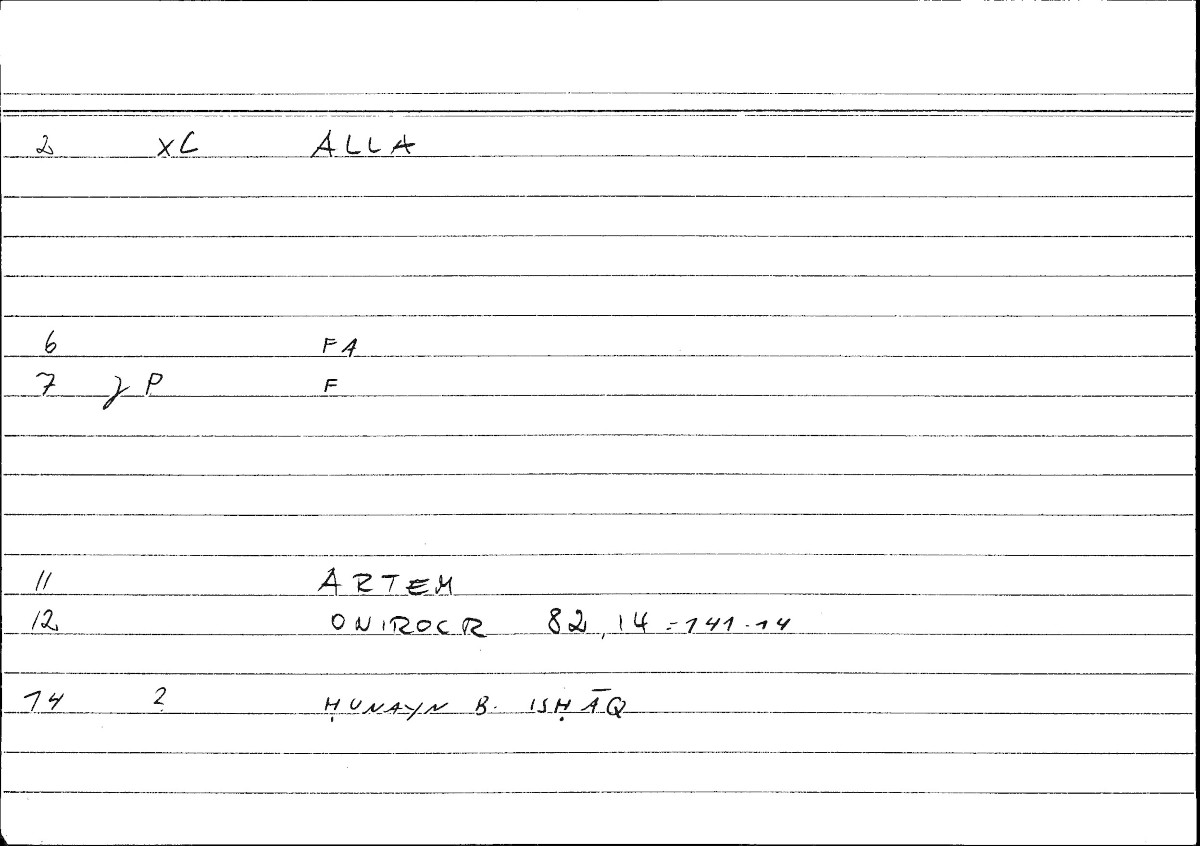 2 XC ALLA
6 FA
7 P F
11 ARTEM
12 ONIROCR 82,14 = 141.14
14 2 ḤUNAYN B. ISḤĀQ